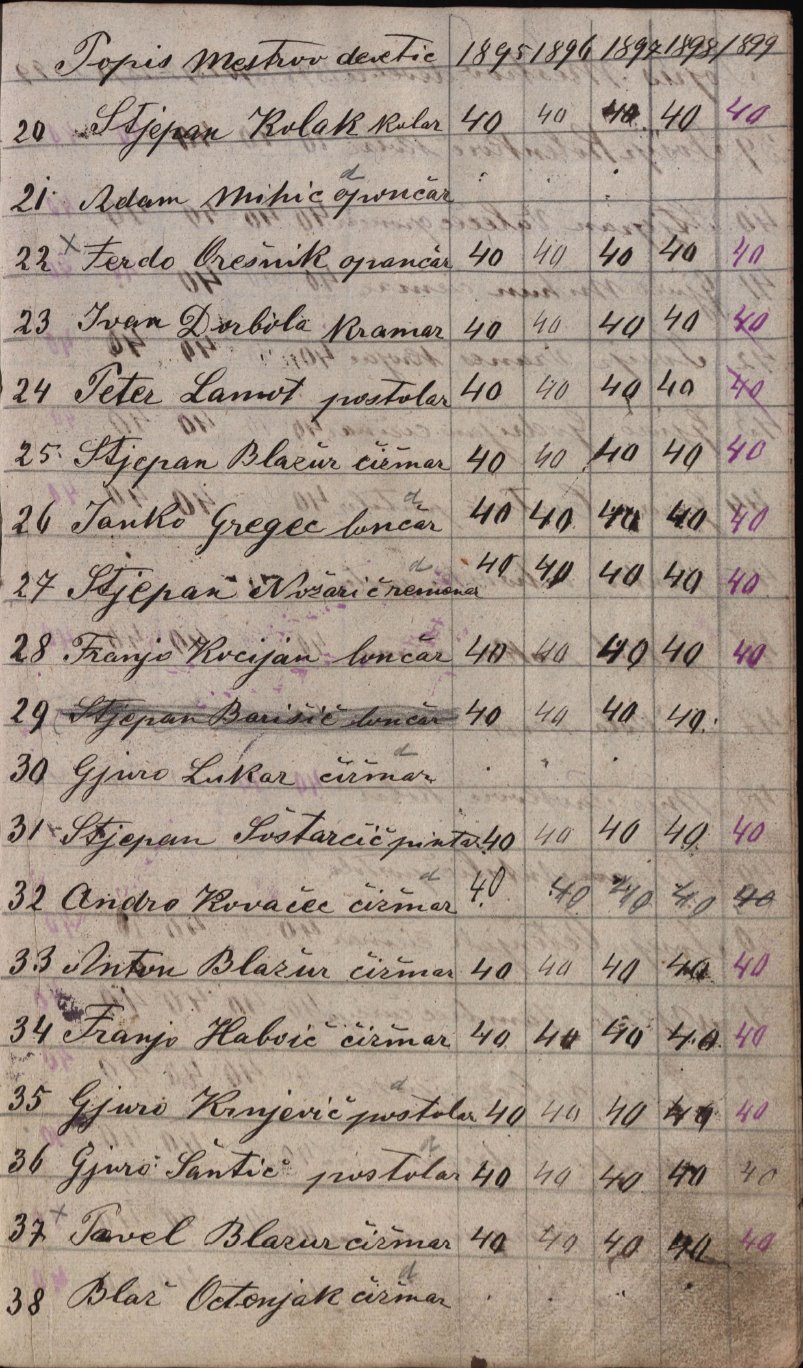 Popis Mestrov desetic 1895 1896 1897 1898 1899
20 Stjepan Kolak kolar 40 40 40 40 40
21 Adam Mihic opončar d
22 x Ferdo Orešnik opančar 40 40 40 40 40
23 Ivan Dorbola kramar 40 40 40 40 40
24 Peter Lamot postolar 40 40 40 40 40
25 Stjepan Blažur čižmar 40 40 40 40 40
26 Janko Gregec lončar d 40 40 40 40 40
27 Stjepan Nožarič remenar d 40 40 40 40 40
28 Franjo Kocijan lončar 40 40 40 40 40
29 Stjepan Barišič lončar 40 40 40 40
30 Gjuro Lukar čižmar d
31 x Stjepan Šoštarčič pintar 40 40 40 40 40
32 Andro Kovačec čižmar d 40 40 40 40 40
33 Anton Blažur čižmar 40 40 40 40 40
34 Franjo Habvič čižmar 40 40 40 40 40
35 Gjuro Krnjevič postolar d 40 40 40 40 40
36 Gjuro Šantič postolar d 40 40 40 40 40
37 x Pavel Blazur čižmar 40 40 40 40 40
38 Blaž Octenjak čižmar d